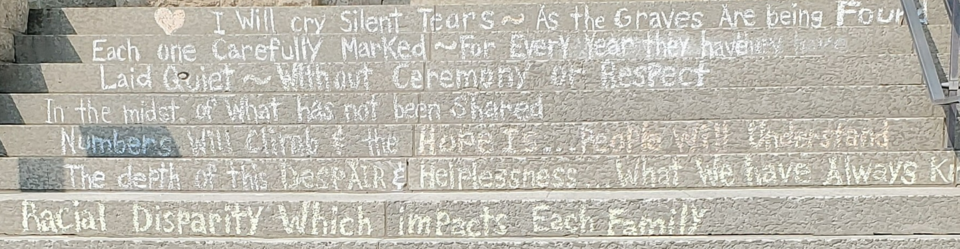 I Will cry Silent Tears ~ As the Graves Are being Found
Each one Carefully Marked ~ For Every Year they have
Laid Quiet ~ Without Ceremony or Respect
In the midst of What has not been Shared
Numbers Will Climb & the Hope Is... People Will Understand
The depth of this DespAIR & Helplessness... What We have Always K
Racial Disparity Which impacts Each Family